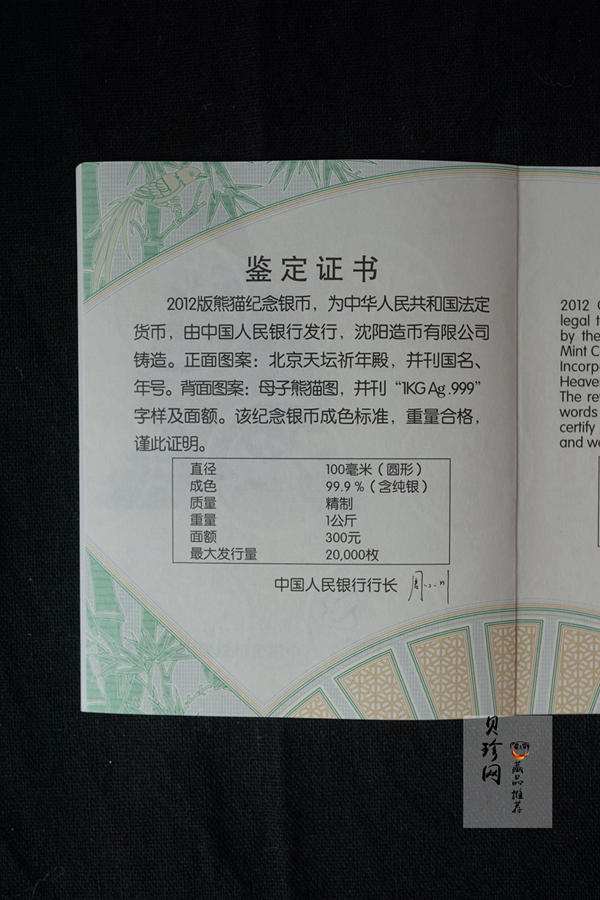 鉴定证书
2012版熊猫纪念银币，为中华人民共和国法定
货币，由中国人民银行发行，沈阳造币有限公司
铸造。正面图案：北京天坛祈年殿，并刊国名、
年号。背面图案：母子熊猫图，并刊“1KG Ag .999”
字样及面额。该纪念银币成色标准，重量合格，
谨此证明。
直径 100毫米（圆形）
成色 99.9 %（含纯银）
质量 精制
重量 1公斤
面额 300元
最大发行量 20,000枚
中国人民银行行长
2012
legal t
by the
Mint C
Incorp
Heave
The re
words
certify
and we
贝珍网
藏品推荐